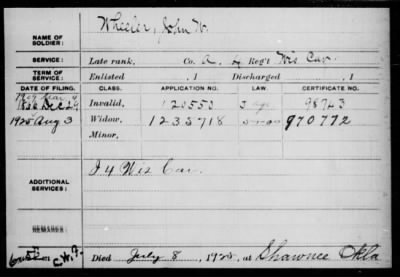 NAME OF SOLDIER: Wheeler, John W.
SERVICE: Late rank, Co. A, 4 Reg't Wis Cav.
TERM OF SERVICE: Enlisted , 1 Discharged , 1
DATE OF FILING. CLASS. APPLICATION NO. LAW. CERTIFICATE NO.
Dec 24 Invalid, 120550 98743
1925 Aug 3 Widow, 1235718 970772
Minor,
ADDITIONAL SERVICES: I 4 Wis Cav.
REMARKS:
C.W.
Died July 8, 1925, at Shawnee Okla